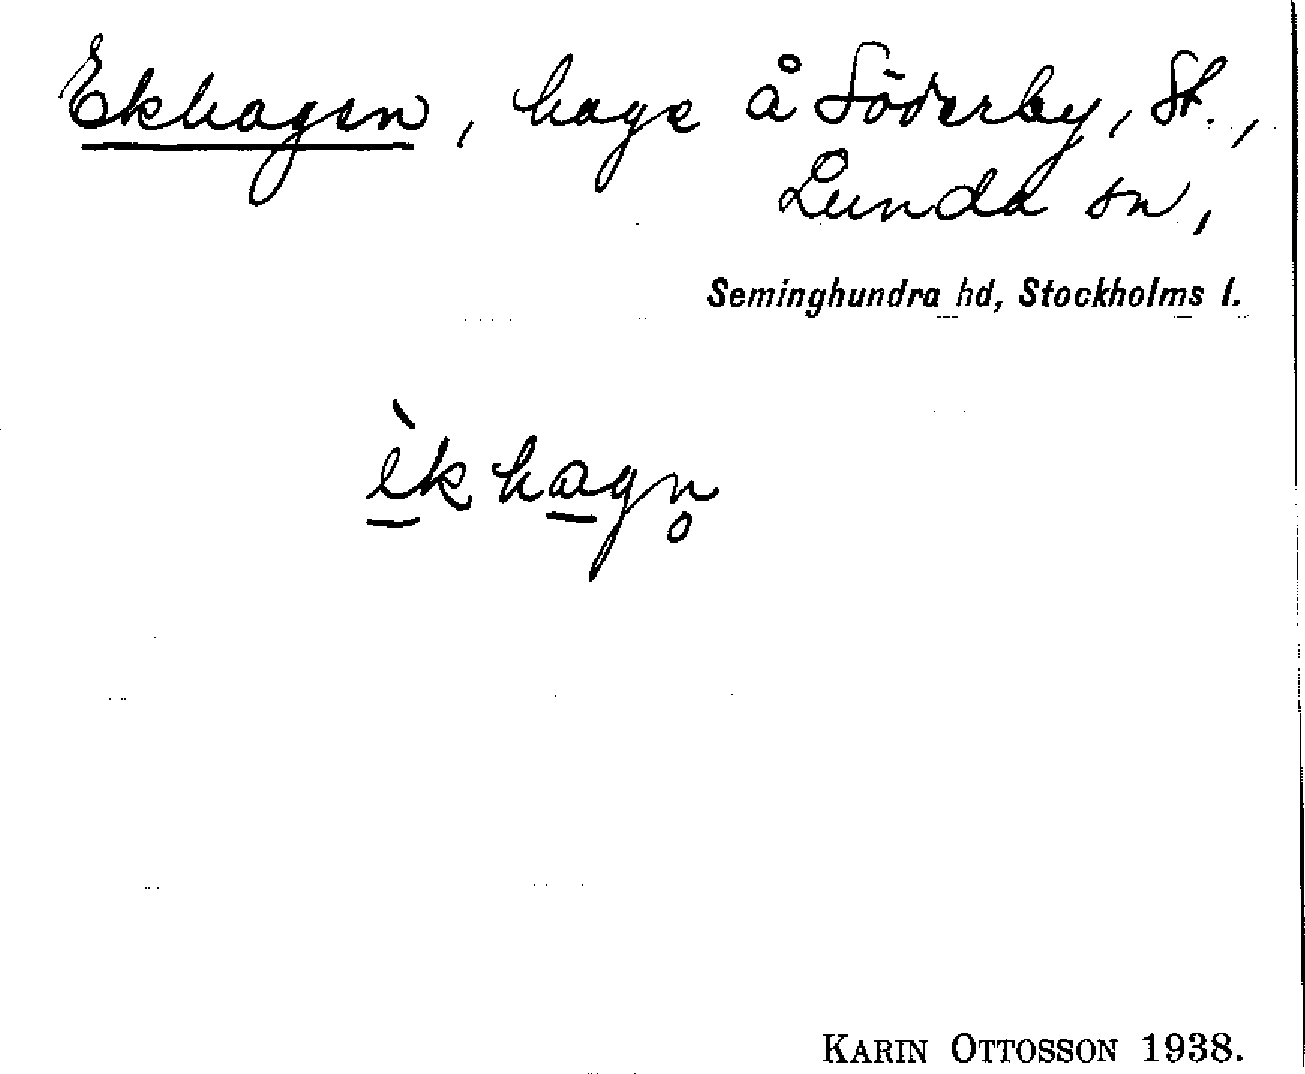 Ekhagen, hage å Söderby, St.,
Lunda sn,
Seminghundra hd, Stockholms l.
èkhagn̥
KARIN OTTOSSON 1938.